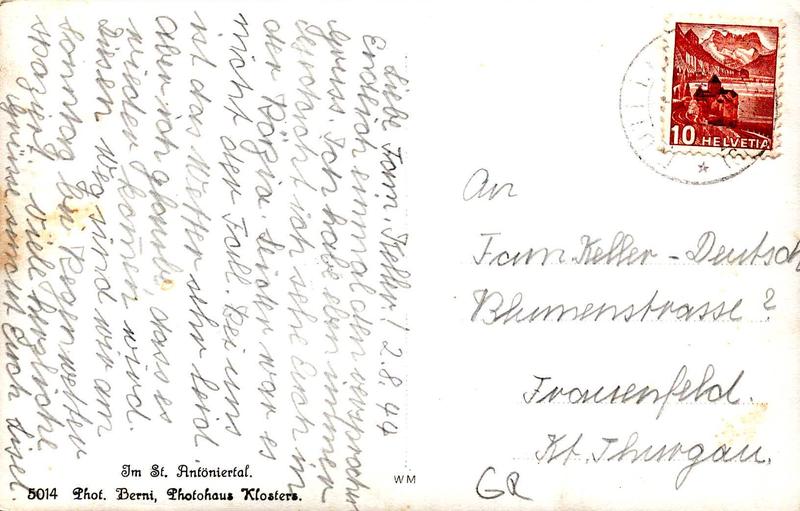 Liebe Fam. Keller! 2.8.44
Endlich einmal den versprochnen
Gruss. Ich habe eben immer
gedacht ich sehe Euch in
der Leider war es
nicht der Fall. Bei uns
ist das Wetter sehr leid.
aber ich glaube, dass es
wieder komen wird.
Diesen Weg sind wir am
Sonntag bei Regenwetter
spaziert. Viele herzliche
Grüsse sendet Euch Lisel
An
Fam. Keller-Deutsch
Blumenstrasse ?
Frauenfeld.
Kt. Thurgau.
GR
10 HELVETIA
Im St. Antöniertal.
5014 Phot. Berni, Photohaus Klosters.
WM